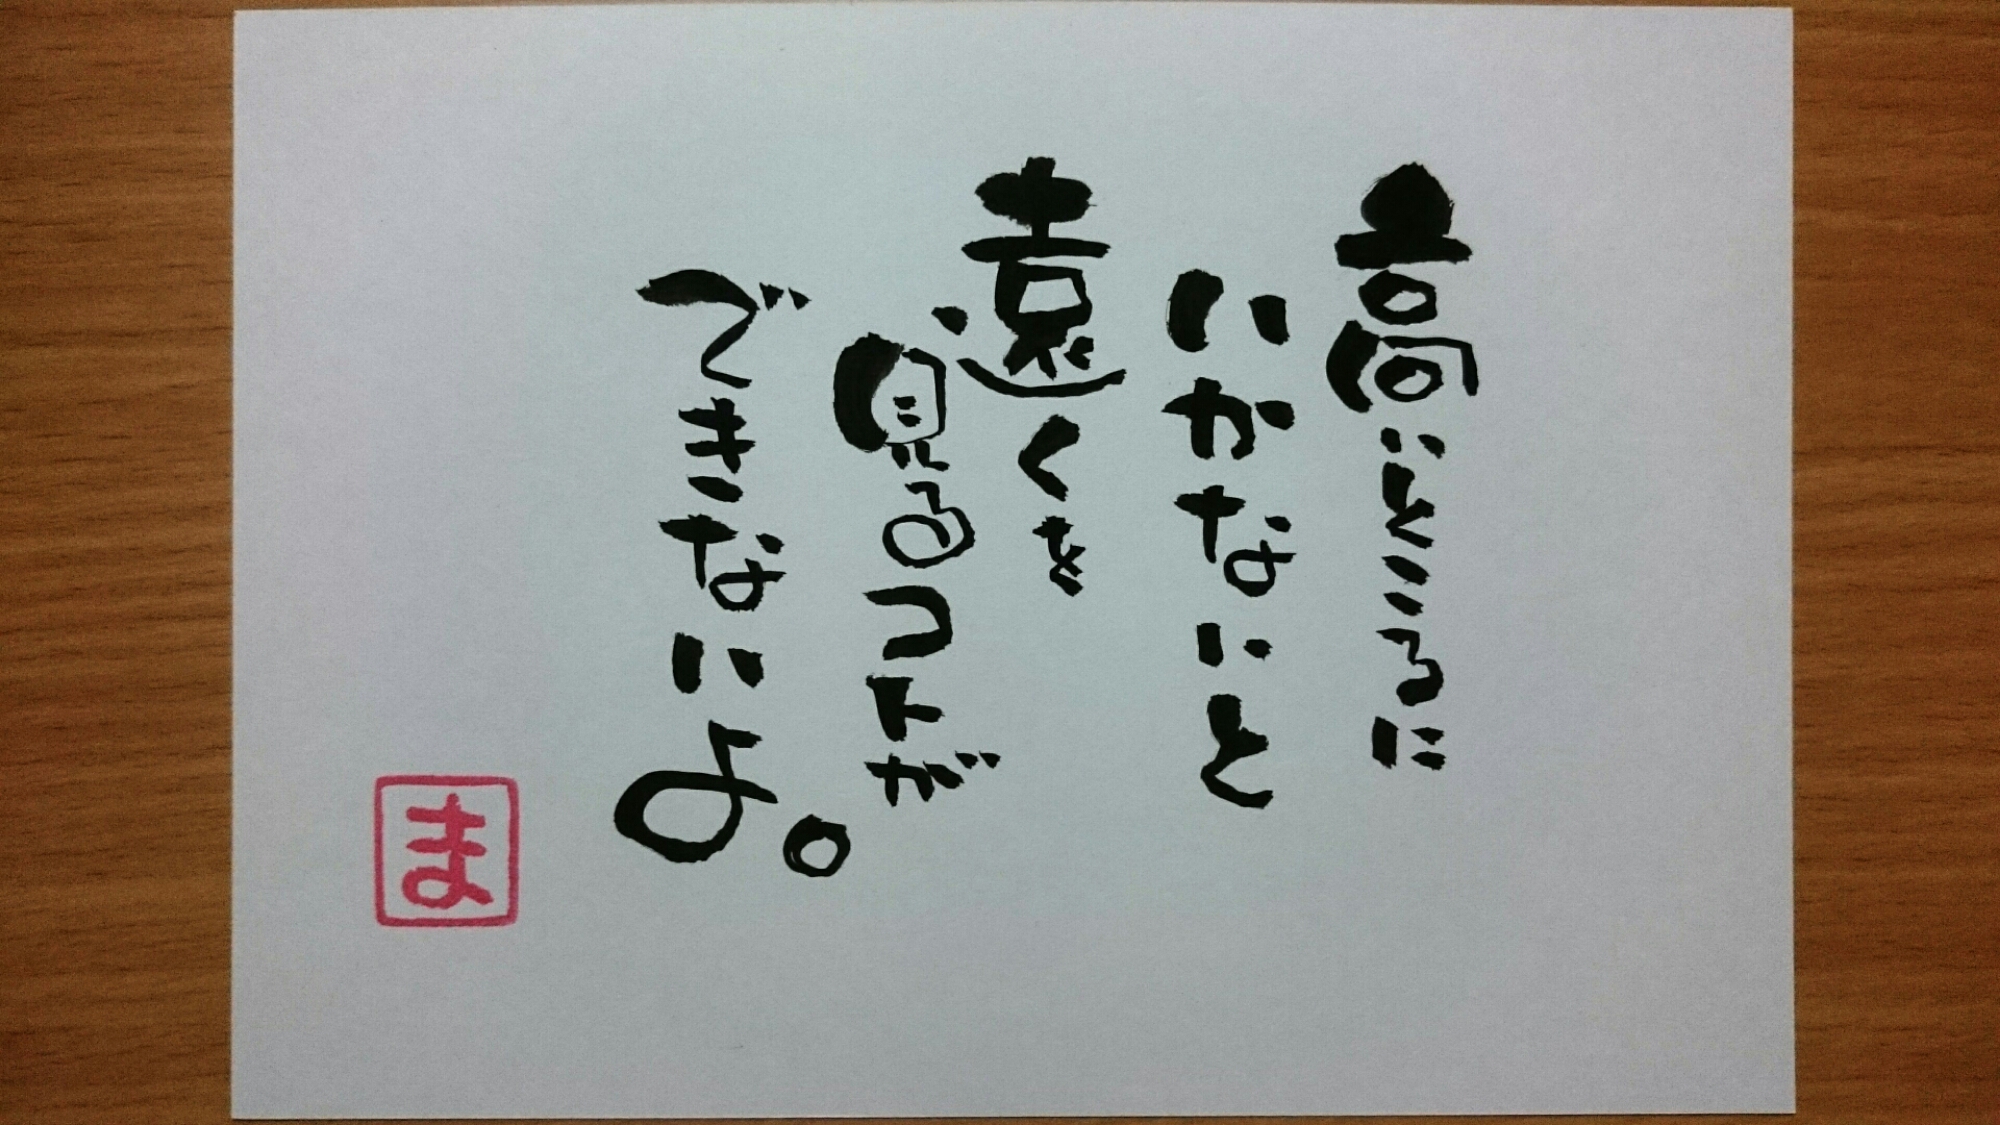 高いところに
いかないと
遠くを
見るコトが
できないよ。
ま